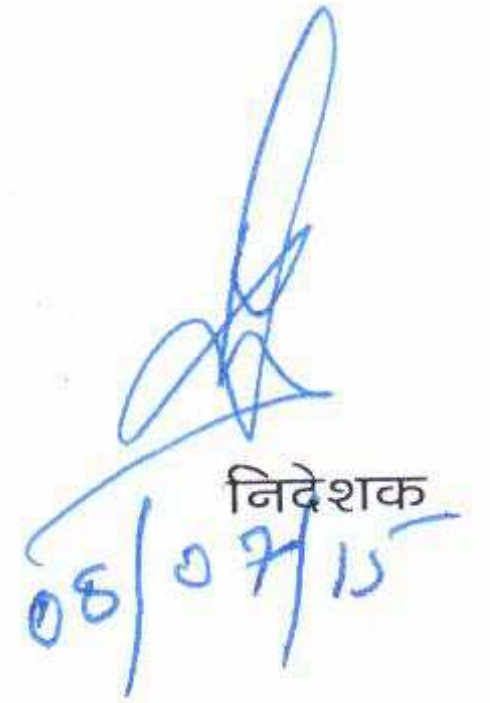 निदेशक
08/07/15